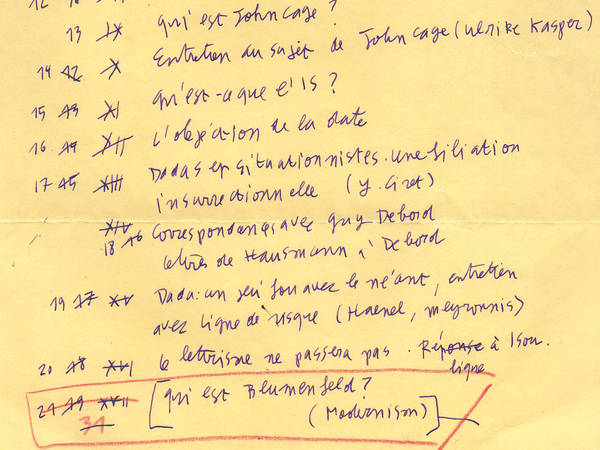 13 IX Qui est John Cage ?
14 12 X Entretien au sujet de John Cage (Ulrike Kasper)
15 13 XI Qu'est-ce que l'IS ?
16 14 XII L'objection de la date
17 15 XIII Dadas et situationnistes. Une filiation
insurrectionnelle (Y. Ciret)
XIV
18 16 Correspondances avec Guy Debord
lettres de Hausmann à Debord
19 17 XV Dada : un jeu fou avec le néant, entretien
avec ligne de risque (Haenel, Meyronnis)
20 18 XVI le lettrisme ne passera pas. Réponse à Isou.
ligne
21 19 XVII [Qui est Blumenfeld ?
34 (Modernism)]